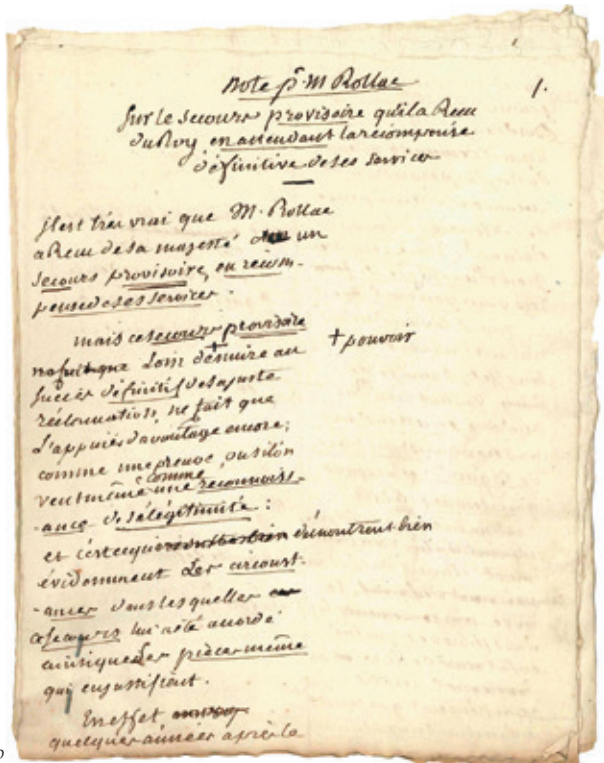 Note pr. M Rollac
1.
sur le secours provisoire qu'il a Recu
du Roy, en attendant la récompense
définitive de ses services
Il est très vrai que M. Rollac
a Recu de sa majesté un
secours provisoire, en récom-
pense de ses services.
mais ce secours provisoire
ne fait que Loin de nuire au
+ pouvoir
succès définitif de sa juste
réclamation, ne fait que
L'appuier davantage encore;
comme une preuve, ou si l'on
veut même comme une reconnaiss-
-ance de sa légitimité :
et c'est ce que démontrent bien
évidemment Les circonst-
-ances dans lesquelles
ce secours lui a été accordé
ainsi que Les pièces même
qui en justifient.
En effet
quelques années après le